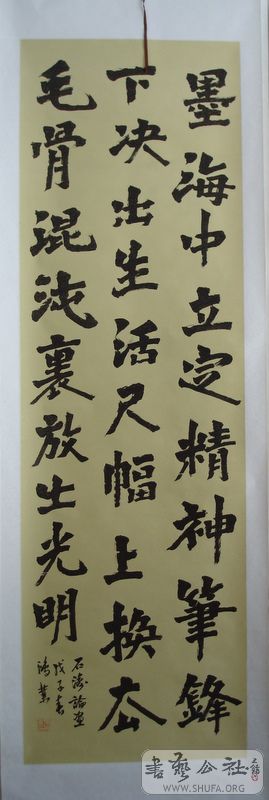 墨海中立定精神筆鋒
下决出生活尺幅上換去
毛骨混沌裏放出光明
石濤論畫
戊子春
書藝公社
WWW.SHUFA.ORG